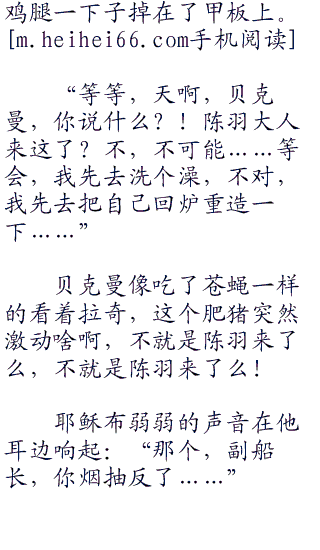 鸡腿一下子掉在了甲板上。
[m.heihei66.com手机阅读]
“等等，天啊，贝克
曼，你说什么？！陈羽大人
来这了？不，不可能……等
会，我先去洗个澡，不对，
我先去把自己回炉重造一
下……”
贝克曼像吃了苍蝇一样
的看着拉奇，这个肥猪突然
激动啥啊，不就是陈羽来了
么，不就是陈羽来了么！
耶稣布弱弱的声音在他
耳边响起：“那个，副船
长，你烟抽反了……”